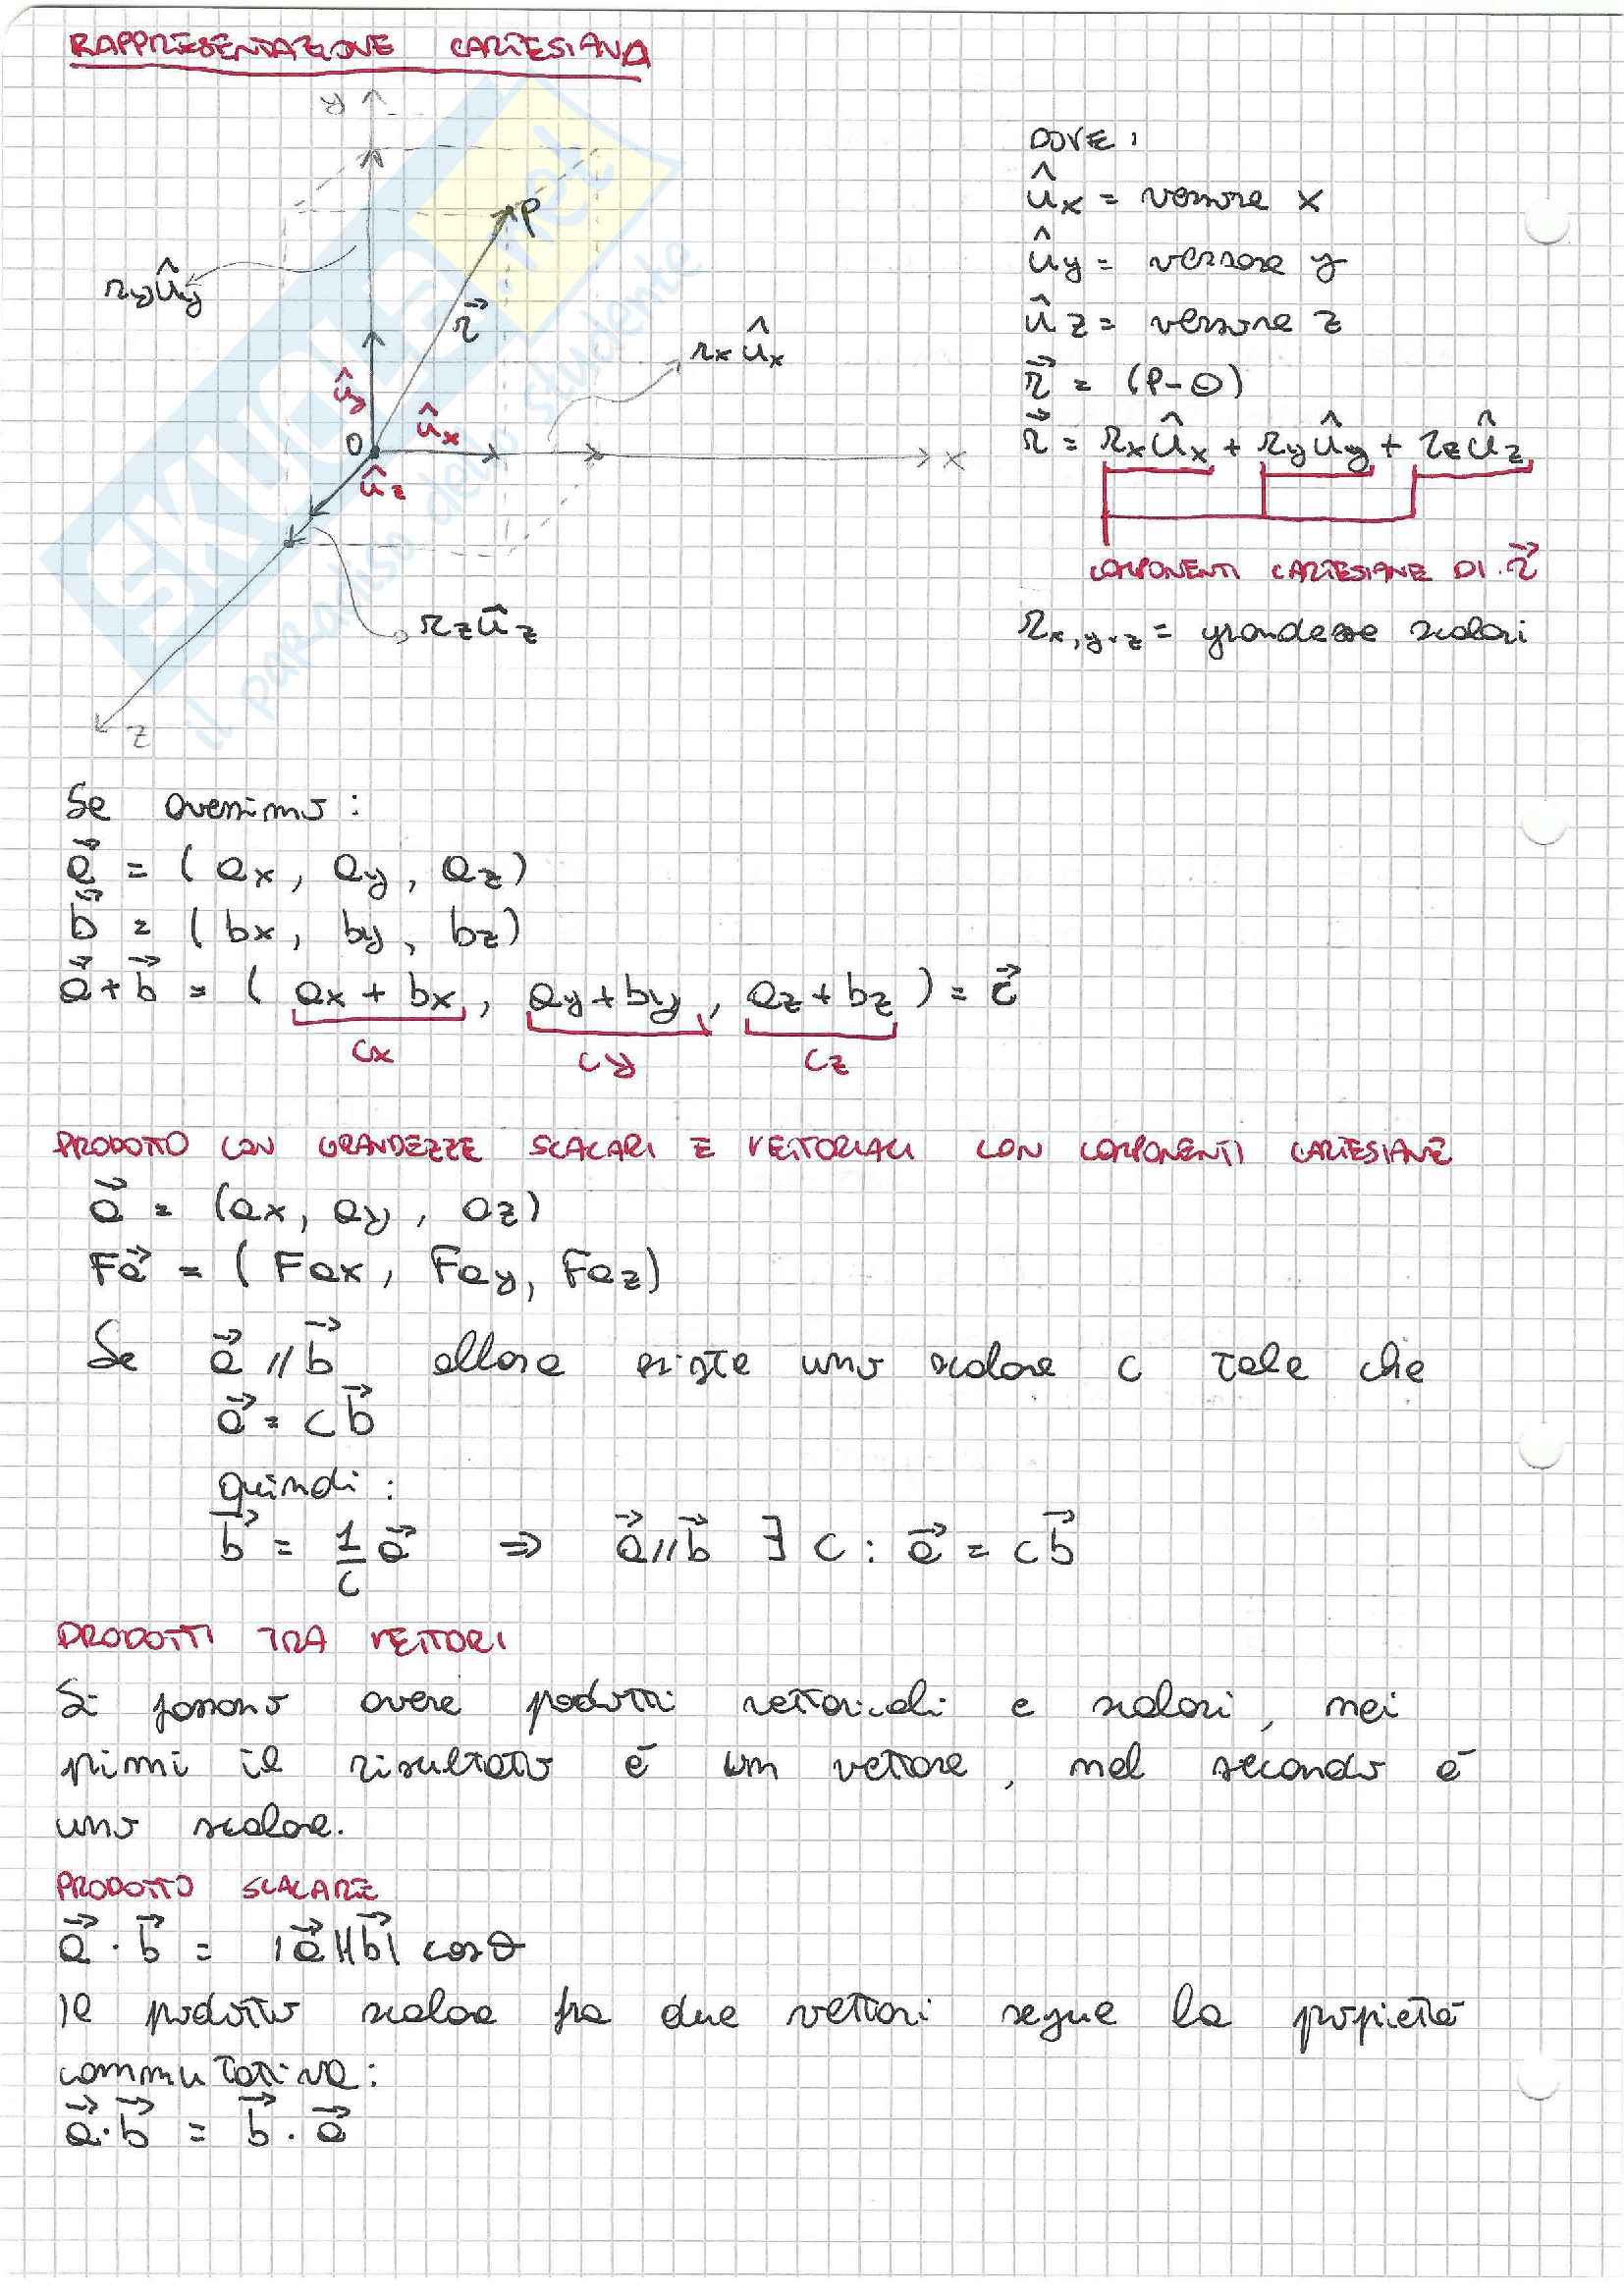 RAPPRESENTAZIONE CARTESIANA
y
P
r_y û_y
r⃗
r_x û_x
û_y
O
û_x
x
û_z
r_z û_z
z
DOVE:
û_x = versore x
û_y = versore y
û_z = versore z
r⃗ = (P-O)
r⃗ = r_x û_x + r_y û_y + r_z û_z
COMPONENTI CARTESIANE DI r⃗
r_x,y,z = grandezze scalari
SKUOLA.net
il paradiso dello studente
Se avessimo:
a⃗ = (ax, ay, az)
b⃗ = (bx, by, bz)
a⃗ + b⃗ = (ax + bx, ay + by, az + bz) = c⃗
cx cy cz
PRODOTTO CON GRANDEZZE SCALARI E VETTORIALI CON COMPONENTI CARTESIANE
a⃗ = (ax, ay, az)
Fa⃗ = (Fax, Fay, Faz)
Se a⃗ // b⃗ allora esiste uno scalare c tale che
a⃗ = cb⃗
quindi:
b⃗ = 1/c a⃗ ⇒ a⃗ // b⃗ ∃ c: a⃗ = cb⃗
PRODOTTI TRA VETTORI
Si possono avere prodotti vettoriali e scalari, nei
primi il risultato é um vettore, nel secondo é
uno scalare.
PRODOTTO SCALARE
a⃗ · b⃗ = |a⃗||b⃗| cosθ
Il prodotto scalare fra due vettori segue la propietà
commutativa:
a⃗·b⃗ = b⃗·a⃗